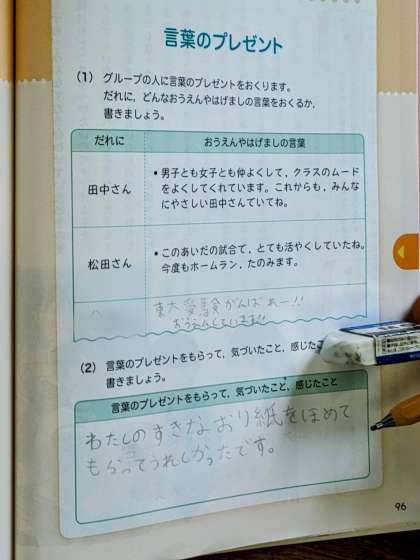 言葉のプレゼント
(1) グループの人に言葉のプレゼントをおくります。
だれに，どんなおうえんやはげましの言葉をおくるか，
書きましょう。
だれに
おうえんやはげましの言葉
田中さん
• 男子とも女子とも仲よくして，クラスのムード
をよくしてくれています。これからも，みんな
にやさしい田中さんでいてね。
松田さん
• このあいだの試合で，とても活やくしていたね。
今度もホームラン，たのみます。
東大受験がんばれー!!
おうえんしています!!
(2) 言葉のプレゼントをもらって，気づいたこと，感じたこ
書きましょう。
言葉のプレゼントをもらって，気づいたこと，感じたこと
わたしのすきなおり紙をほめて
もらってうれしかったです。
96